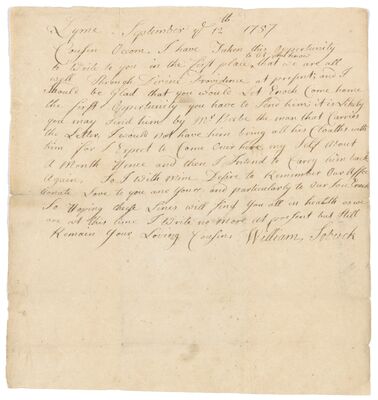 Lyme September ye 12th 1757
Cousin Occom, I have Taken this Opportunity
to Write to you in the first place to let you know that we are all
well Through Divine Providence at present, and I
Should be glad that you would Let Enoch Come home
the first Opportunity you have to Send him, it is likely
you may Send him by Mr Beebe the man that Carries
the Letter, I would not have him bring all his Cloaths with
him for I Expect to Come Over here my Self About
A Month Hence and then I Intend to Carry him back
Again. So I With Mine Desire to Remember Our Affec
tionate Love to you and Yours and particularly to Our Son Enoch
So Hoping these Lines will find You all in health as we
are at this time I Write no more at present but Still
Remain Your Loving Cousin, William